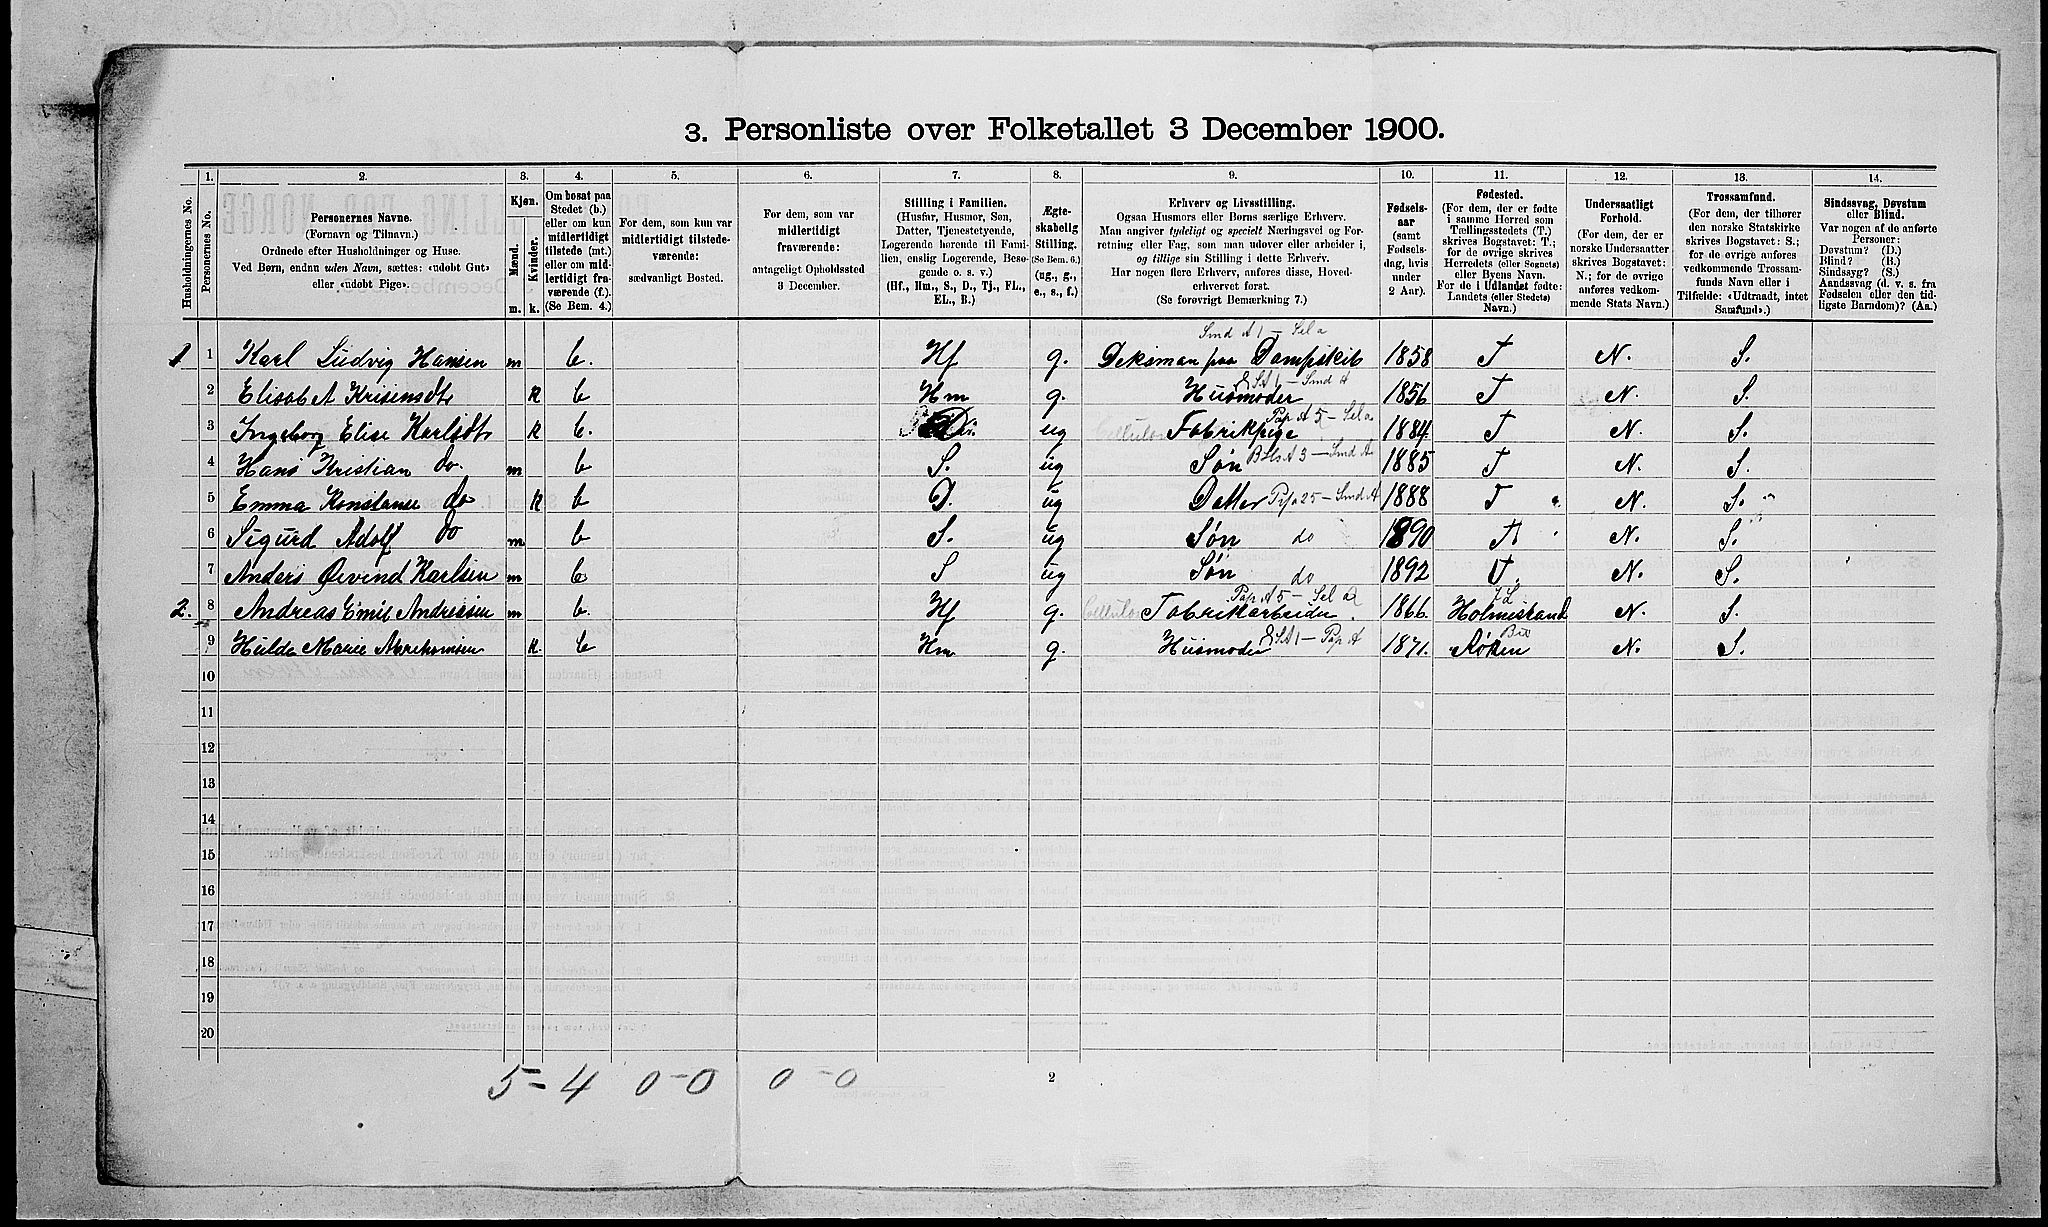 3. Personliste over Folketallet 3 December 1900.
Husholdningernes No.
1. Personernes No.
2. Personernes Navne. (Fornavn og Tilnavn.) Ordnede efter Husholdninger og Huse. Ved Børn, endnu uden Navn, sættes: «udøbt Gut» eller «udøbt Pige».
3. Kjøn. Mænd. m. Kvinder. k.
4. Om bosat paa Stedet (b.) eller om kun midlertidigt tilstede (mt.) eller om midlertidigt fraværende (f.). (Se Bem. 4.)
5. For dem, som kun var midlertidigt tilstedeværende: sædvanligt Bosted.
6. For dem, som var midlertidigt fraværende: antageligt Opholdssted 3 December.
7. Stilling i Familien. (Husfar, Husmor, Søn, Datter, Tjenestetyende, Logerende hørende til Familien, enslig Logerende, Besøgende o. s. v.) (Hf., Hm., S., D., Tj., FL., EL., B.)
8. Ægteskabelig Stilling. (Se Bem. 6.) (ug., g., e., s., f.)
9. Erhverv og Livsstilling. Ogsaa Husmors eller Børns særlige Erhverv. Man angiver tydeligt og specielt Næringsvei og Forretning eller Fag, som man udover eller arbeider i, og tillige sin Stilling i dette Erhverv. Har nogen flere Erhverv, anføres disse, Hovederhvervet først. (Se forøvrigt Bemærkning 7.)
10. Fødselsaar (samt Fødselsdag, hvis under 2 Aar).
11. Fødested. (For dem, der er fødte i samme Herred som Tællingsstedets (T.) skrives Bogstavet: T.; for de øvrige skrives Herredets (eller Sognets) eller Byens Navn. For de i Udlandet fødte: Landets (eller Stedets) Navn.)
12. Undersaatligt Forhold. (For dem, der er norske Undersaatter skrives Bogstavet: N.; for de øvrige anføres vedkommende Stats Navn.)
13. Trossamfund. (For dem, der tilhører den norske Statskirke skrives Bogstavet: S.; for de øvrige anføres vedkommende Trossamfunds Navn eller i Tilfælde: «Udtraadt, intet Samfund».)
14. Sindssvag, Døvstum eller Blind. Var nogen af de anførte Personer: Døvstum? (D.) Blind? (B.) Sindssyg? (S.) Aandssvag (d. v. s. fra Fødselen eller den tidligste Barndom)? (Aa.)
Smd A 1 – Sel a
1 1 Karl Ludvig Hansen m b. Hf g. Deksman paa Dampskib 1858 T N. S.
2 Elisabet Kristensdt. k b Hm g. Husmoder 1856 T N. S.
3 Ingeborg Elise Karlsdt. k b. D. ug Fabrikpige Pap A 5 – Sel a 1884. T N. S.
4 Hans Kristian do. m b S. ug Søn 1885 T N. S.
5 Emma Konstanse do k b D. ug Datter 1888 T N. S.
6 Sigurd Adolf do m b S. ug Søn do 1890 T N. S.
7 Anders Øivind Karlsen m b S ug Søn do 1892 T. N. S.
2. 8 Andreas Emil Andresen m b. Hf g. Cellulos Fabrikarbeider. Pap A 5 – Sel a 1866. Holmestrand N. S.
9 Hulda Marie Abrahamsen k. b Hm g. Husmoder 1871. Røken N. S.
10
11
12
13
14
15
16
17
18
19
20
5 – 4 0 – 0 0 – 0
2